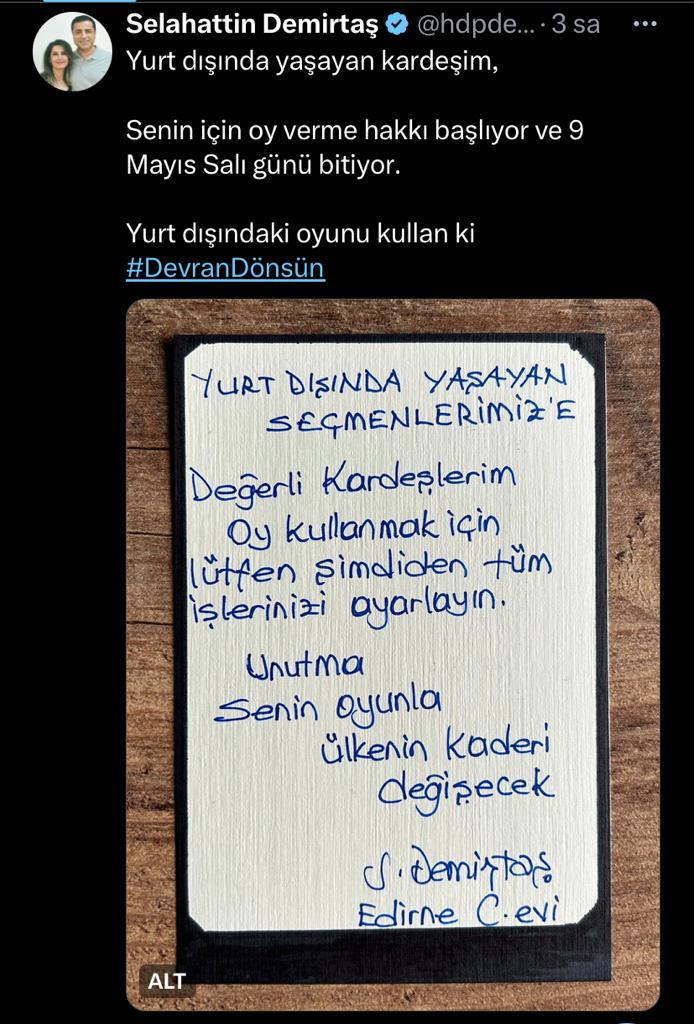 Selahattin Demirtaş @hdpde... · 3 sa
Yurt dışında yaşayan kardeşim,
Senin için oy verme hakkı başlıyor ve 9
Mayıs Salı günü bitiyor.
Yurt dışındaki oyunu kullan ki
#DevranDönsün
YURT DIŞINDA YAŞAYAN
SEÇMENLERİMİZ'E
Değerli Kardeşlerim
Oy kullanmak için
lütfen şimdiden tüm
işlerinizi ayarlayın.
Unutma
Senin oyunla
ülkenin kaderi
değişecek
S. Demirtaş
Edirne C.evi
ALT